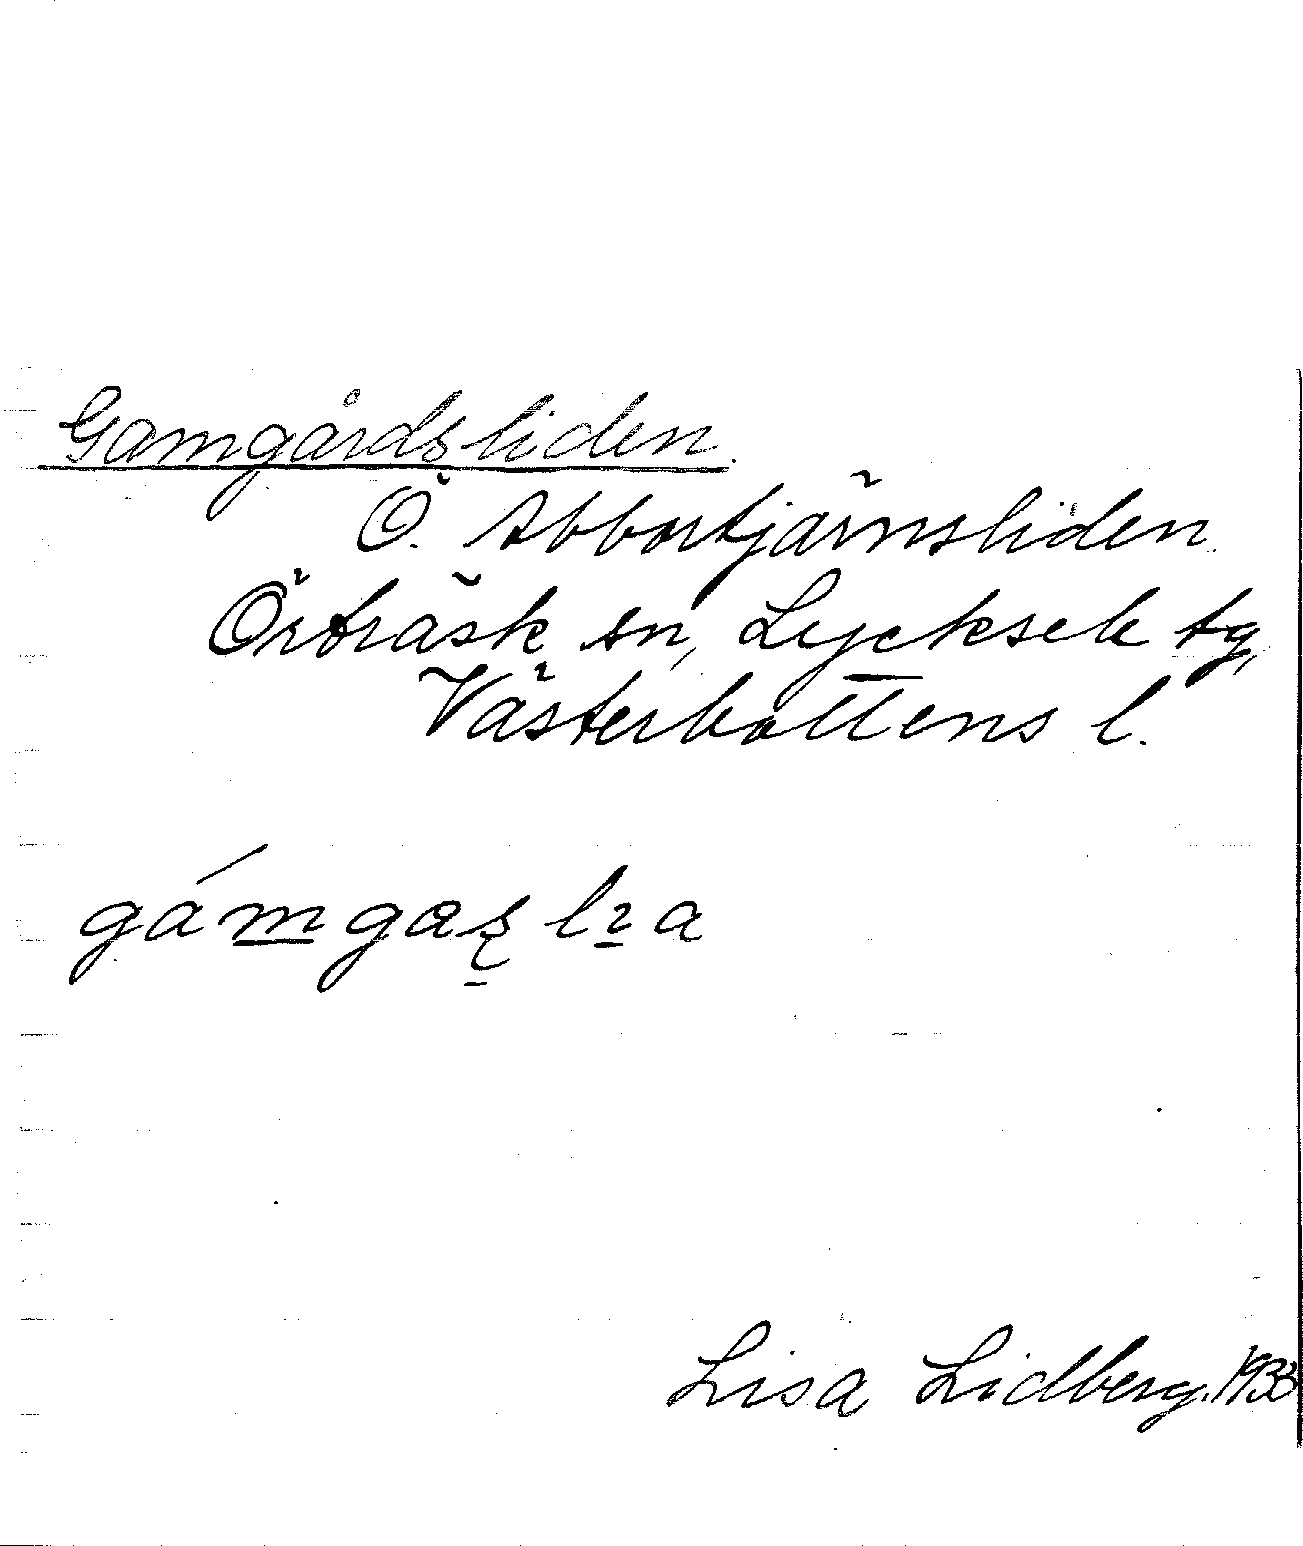 Gamgårdsliden.
Ö. Abbortjärnsliden.
Örträsk sn, Lycksele tg,
Västerbottens l.
Lisa Lidberg. 1933